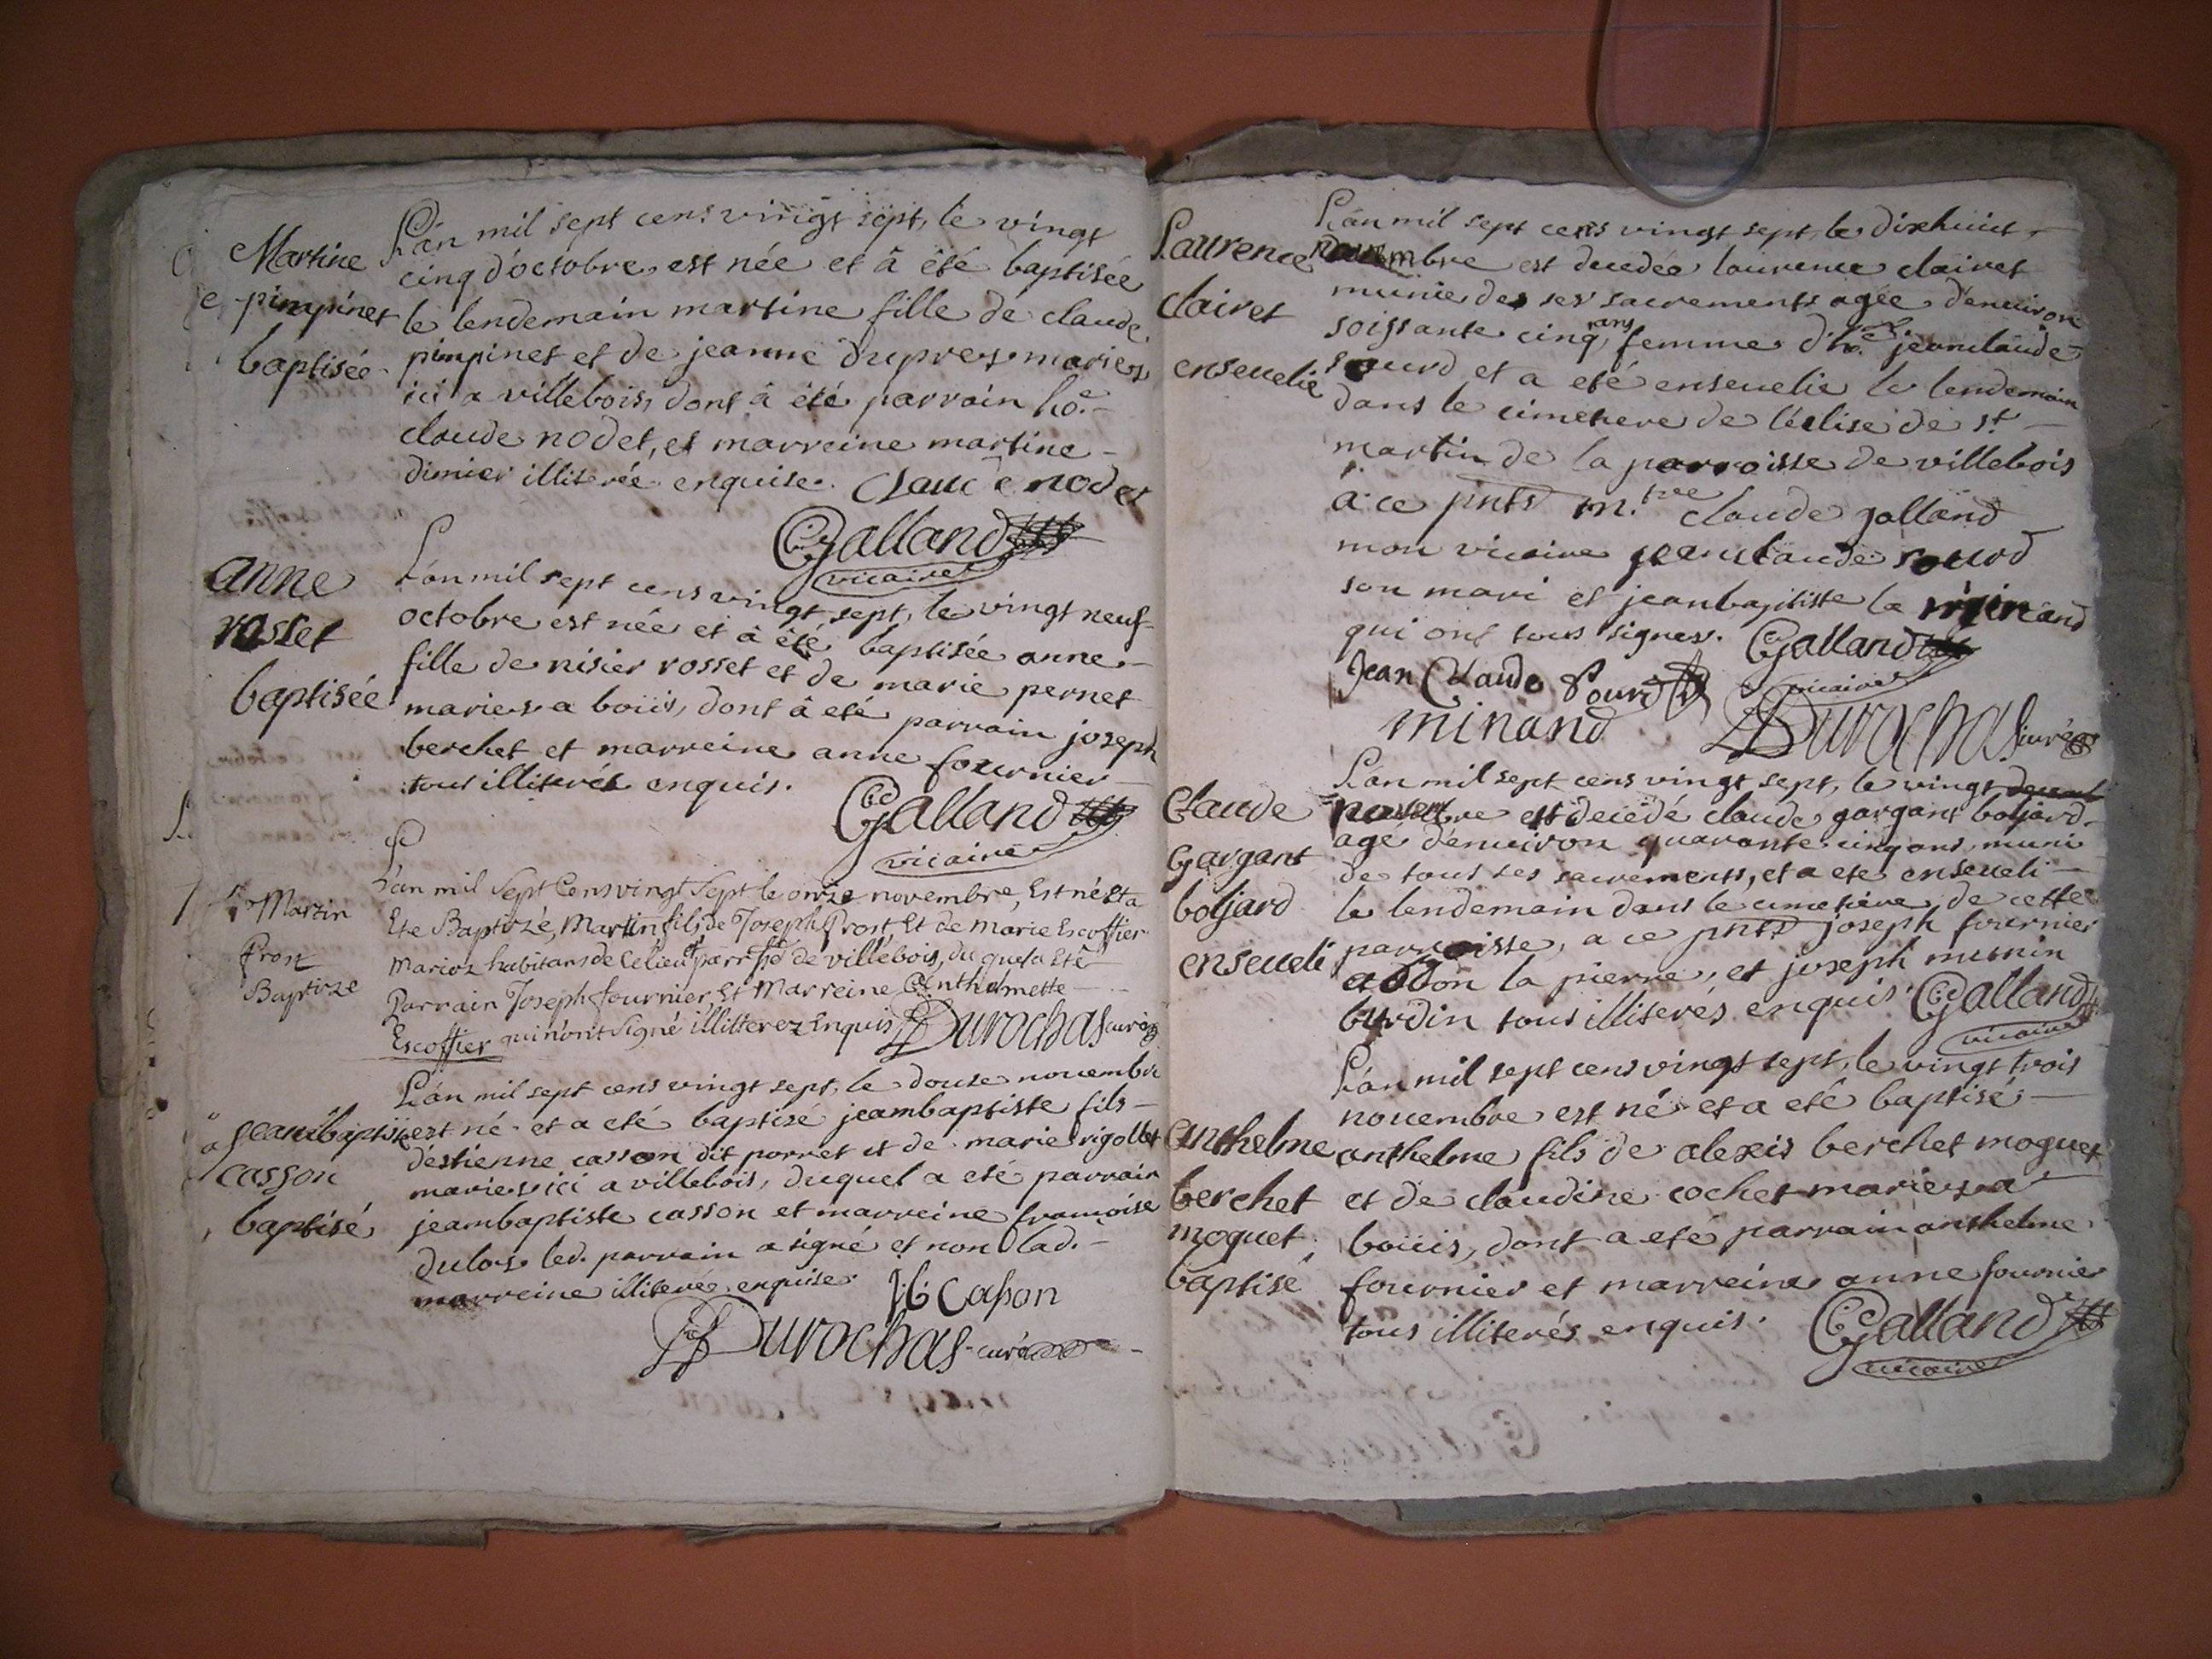 Martine
pimpinet
baptisée
L'an mil sept cens vingt sept, le vingt
cinq d'octobre est née et à été baptisée
le lendemain martine fille de claude
pimpinet et de jeanne dupres maries
ici a villebois, dont à été parrain ho.e
claude nodet, et marreine martine
dimier illiterée enquise. Claude nodet
CGalland
vicaire
anne
rosset
baptisée
L'an mil sept cens vingt sept, le vingt neuf
octobre est née et à été baptisée anne
fille de nisier rosset et de marie pernet
maries a boüis, dont à eté parrain joseph
berchet et marreine anne fournier
tous illiterés enquis.
CGalland
vicaire
Martin
Prost
Baptizé
L'an mil Sept Cens vingt Sept le onze novembre, Est né Et a
Ete Baptizé, Martin fils de Joseph Prost, Et de Marie Escoffier
Mariez habitans de Celieu parrsse de villebois, du quel a Eté
Parrain Joseph fournier, Et Marreine Anthelmette
Escoffier qui n'ont Signé illitterez Enquis Durochas curé
jeanbaptiste
casson
baptisé
L'an mil sept cens vingt sept, le douse nouembre
est né et a eté baptisé jeambaptiste fils
d'estienne casson dit porret et de marie rigollet
maries ici a villebois, duquel a eté parrain
jeambaptiste casson et marreine francoise
dulos led. parrain a signé et non lad.
marreine illiterée enquise. JB Casson
Durochas curé
Laurence
clairet
enseuelie
L'an mil sept cens vingt sept, le dixhuict
nouembre est decedée laurence clairet
munie des ses sacrements agée d'enuiron
soissante cinq ans femme d'ho.e jeanclaude
sourd et a eté enseuelie le lendemain
dans le cimetiere de l'eclise de st
martin de la parroisse de villebois
a ce pnts m.tre claude galland
mon vicaire jeanclaude sourd
son mari et jeanbaptiste la minand
qui ont tous signes. CGalland
vicaire
Jean Claude Sourd
minand Durochas curé
Claude
Gargant
boljard
enseueli
L'an mil sept cens vingt sept, le vingt
nouembre est decedé claude gargant boljard
agé d'enuiron quarante cinq ans, muni
de tous ses sacrements, et a eté enseueli
le lendemain dans le cimetiere de cette
parroisse, a ce pnts joseph fournier
abdon la pierre, et joseph munin
burdin tous illiterés enquis. CGalland
vicaire
anthelme
berchet
moguet
baptisé
L'an mil sept cens vingt sept, le vingt trois
nouembre est né et a eté baptisé
anthelme fils de alexis berchet moguet
et de claudine cochet maries a
boüis, dont a eté parrain anthelme
fournier et marreine anne fournier
tous illiterés enquis. CGalland
vicaire